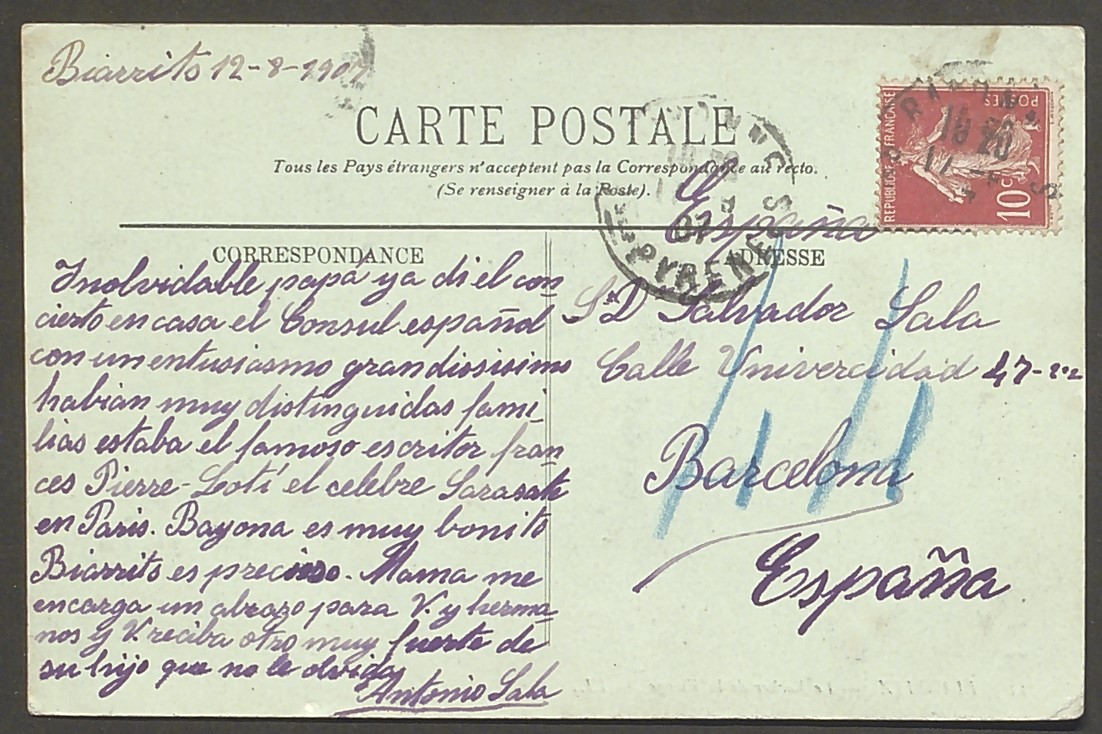 Biarrits 12-8-1907
CARTE POSTALE
Tous les Pays étrangers n'acceptent pas la Correspondance au recto.
(Se renseigner à la Poste).
España
REPUBLIQUE FRANÇAISE
POSTES
10c
CORRESPONDANCE
Inolvidable papa ya di el con
cierto en casa el Consul español
con un entusiasmo grandiosisimo
habian muy distinguidas fami
lias estaba el famoso escritor fran
ces Pierre-Lotí el celebre Sarasate
en Paris. Bayona es muy bonito
Biarrits es precioso. Mama me
encarga un abrazo para V. y herma-
nos y V. reciba otro muy fuerte de
su hijo que no le olvida
Antonio Sala
ADRESSE
Sr D Salvador Sala
Calle Univercidad 47-2º2ª
Barcelona
España
PYRENEES
07